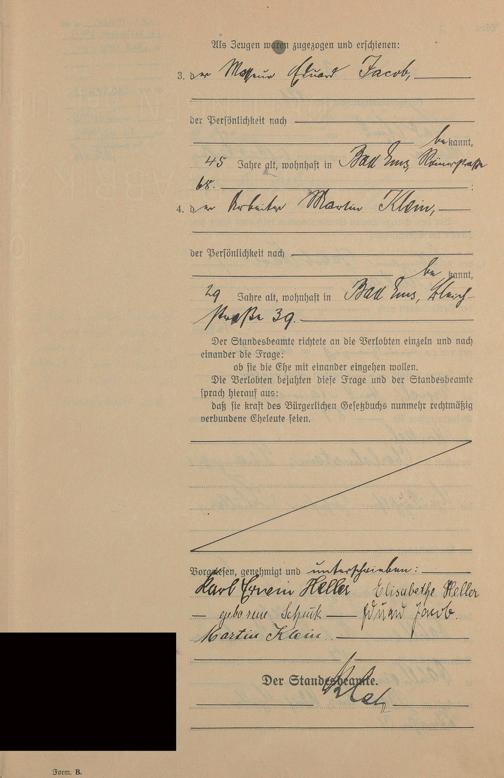 Als Zeugen waren zugezogen und erschienen:
3. der Eduard Jacob,
der Persönlichkeit nach
bekannt,
45 Jahre alt, wohnhaft in Bad Ems, Römerstraße
68.
4. der Arbeiter Martin Klein,
der Persönlichkeit nach
bekannt,
29 Jahre alt, wohnhaft in Bad Ems, Bleich-
straße 39.
Der Standesbeamte richtete an die Verlobten einzeln und nach
einander die Frage:
ob sie die Ehe mit einander eingehen wollen.
Die Verlobten bejahten diese Frage und der Standesbeamte
sprach hierauf aus:
daß sie kraft des Bürgerlichen Gesetzbuchs nunmehr rechtmäßig
verbundene Eheleute seien.
Vorgelesen, genehmigt und unterschrieben:
Karl Erwin Heller Elisabethe Heller
geborene Eduard Jacob.
Martin Klein
Der Standesbeamte.
Form. B.